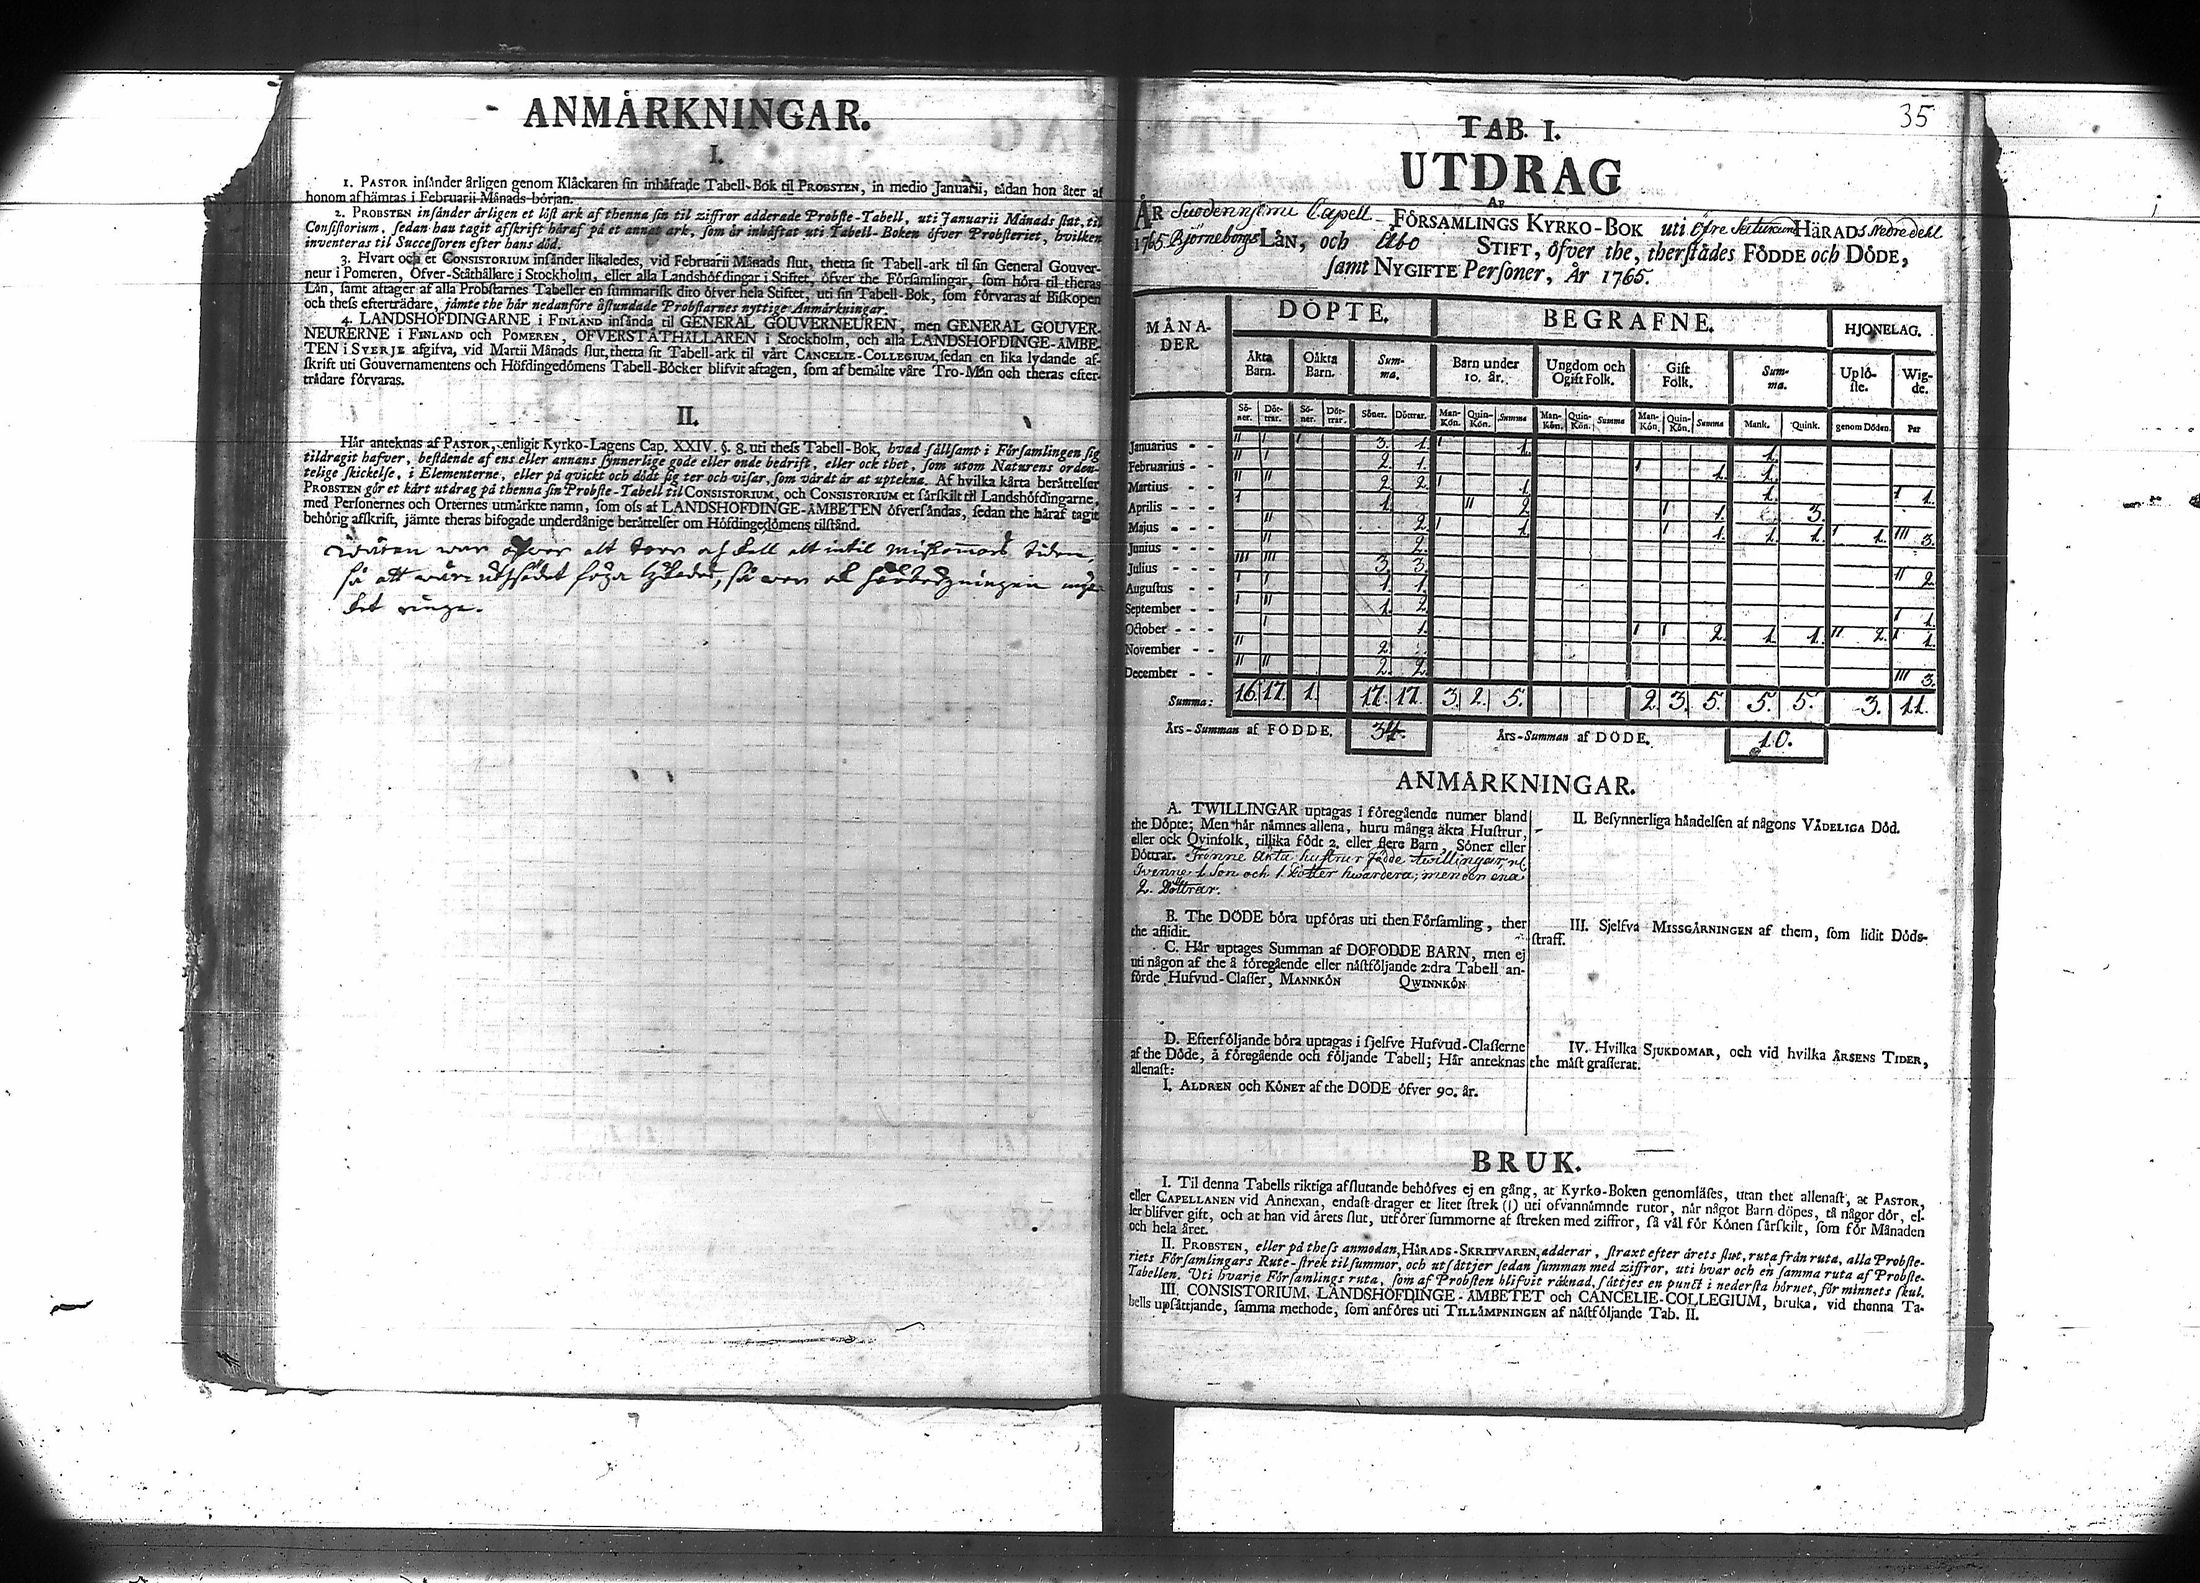 ANMÅRKNINGAR.
I.
1. PASTOR insånder årligen genom Klåckaren sin inhåftade Tabell-Bok til PROBSTEN, in medio Januarii, tådan hon åter af
honom afhåmtas i Februarii Månads-början.
2. PROBSTEN insånder årligen et löst ark af thenna sin til ziffror adderade Probste-Tabell, uti Januarii Månads slut, til
Consistorium, sedan han tagit afskrift håraf på et annat ark, som år inhåftat uti Tabell-Boken öfver Probsteriet, hvilken
inventeras til Successoren efter hans död.
3. Hvart och et CONSISTORIUM insånder likaledes, vid Februarii Månads slut, thetta sit Tabell-ark til sin General Gouver-
neur i Pomeren, Öfver-Ståthållare i Stockholm, eller alla Landshöfdingar i Stiftet, öfver the Församlingar, som höra til theras
Lån, samt aftager af alla Probstarnes Tabeller en summarisk dito öfver hela Stiftet, uti sin Tabell-Bok, som förvaras af Biskopen
och thess eftertrådare, jåmte the hår nedanföre åstundade Probstarnes nyttige Anmårkningar.
4. LANDSHÖFDINGARNE i FINLAND insånda til GENERAL GOUVERNEUREN, men GENERAL GOUVER-
NEURERNE i FINLAND och POMEREN, ÖFVERSTÅTHÅLLAREN i Stockholm, och alla LANDSHÖFDINGE-ÅMBE-
TEN i SVERJE afgifva, vid Martii Månads slut, thetta sit Tabell-ark til vårt CANCELIE-COLLEGIUM, sedan en lika lydande af-
skrift uti Gouvernamentens och Höfdingedömens Tabell-Böcker blifvit aftagen, som af bemålte våre Tro-Mån och theras efter-
trådare förvaras.
II.
Hår anteknas af PASTOR, enligit Kyrko-Lagens Cap. XXIV. §. 8. uti thess Tabell-Bok, hvad sållsamt i Församlingen sig
tildragit hafver, bestående af ens eller annans synnerlige gode eller onde bedrift, eller ock thet, som utom Naturens orden-
telige skickelse, i Elementerne, eller på qvickt och dödt sig ter och visar, som vårdt år at uptekna. Af hvilka kårta beråttelser
PROBSTEN gör et kårt utdrag på thenna sin Probste-Tabell til CONSISTORIUM, och CONSISTORIUM et sårskilt til Landshöfdingarne,
med Personernes och Orternes utmårkte namn, som oss af LANDSHÖFDINGE-ÅMBETEN öfversåndas, sedan the håraf tagit
behörig afskrift, jåmte theras bifogade underdånige beråttelser om Höfdingedömens tilstånd.
wåren war alt torr och kall alt intil
så att
ket ringa.
35
TAB. I.
UTDRAG
AF
ÅR Suodenniemi Capell FÖRSAMLINGS KYRKO-BOK uti Öfre HÅRADs Nedre dehl
1765 Björneborgs LÅN, och Åbo STIFT, öfver the, therstådes FÖDDE och DÖDE,
samt NYGIFTE Personer, År 1765.
MÅNA- DÖPTE. BEGRAFNE. HJONELAG.
DER. Åkta Oåkta Sum- Barn under Ungdom och Gift Sum- Uplö- Wig-
Barn. Barn. ma. 10. år. Ogift Folk. Folk. ma. ste. de.
Sö- Döt- Sö- Döt- Söner. Döttrar. Man- Quin- Summa Man- Quin- Summa Man- Quin- Summa Mank. Quink. genom Döden. Par
ner. trar. ner. trar. Kön. Kön. Kön. Kön. Kön. Kön.
Januarius - - II I I 3. 1. I 1. 1.
Februarius - - II I 2. 1. I 1. 1.
Martius - - II II 2. 2. I 1. 1. I 1.
Aprilis - - - I 1. II 2. I 1. 3.
Majus - - - II 2. I 1. I 1. 1. 1. I 1. III 3.
Junius - - - II 2.
Julius - - - III III 3. 3. II 2.
Augustus - - I I 1. 1.
September - - I II 1. 2. I 1.
October - - - I 1. I I 2. 1. 1. II 2. I 1.
November - - II 2.
December - - II II 2. 2. III 3.
Summa: 16. 17. 1. 17. 17. 3. 2. 5. 2. 3. 5. 5. 5. 3. 11.
Års-Summan af FÖDDE. 34. Års-Summan af DÖDE. 10.
ANMÅRKNINGAR.
A. TWILLINGAR uptagas i föregående numer bland
the Döpte; Men hår nåmnes allena, huru många åkta Hustrur,
eller ock Qvinfolk, tillika födt 2. eller flere Barn, Söner eller
Döttrar. Trenne äkta hustrur födde twillingar, nl.
Tvenne 1 Son och 1 Dotter hwardera; men den ena
2. Döttrar.
B. The DÖDE böra upföras uti then Församling, ther
the aflidit.
C. Hår uptages Summan af DÖFÖDDE BARN, men ej
uti någon af the å föregående eller nåstföljande 2:dra Tabell an-
förde Hufvud-Classer, MANNKÖN QWINNKÖN
D. Efterföljande böra uptagas i sjelfve Hufvud-Classerne
af the Döde, å föregående och följande Tabell; Hår anteknas
allenast:
I. ÅLDREN och KÖNET af the DÖDE öfver 90. år.
II. Besynnerliga håndelsen af någons VÅDELIGA Död.
III. Sjelfva MISSGÅRNINGEN af them, som lidit Döds-
straff.
IV. Hvilka SJUKDOMAR, och vid hvilka ÅRSENS TIDER,
the måst grasserat.
BRUK.
I. Til denna Tabells riktiga afslutande behöfves ej en gång, at Kyrko-Boken genomlåses, utan thet allenast, at PASTOR,
eller CAPELLANEN vid Annexan, endast drager et litet strek (I) uti ofvannåmnde rutor, når något Barn döpes, tå någor dör, el-
ler blifver gift, och at han vid årets slut, utförer summorne af streken med ziffror, så vål för Könen sårskilt, som för Månaden
och hela året.
II. PROBSTEN, eller på thess anmodan, HÅRADS-SKRIFVAREN, adderar, straxt efter årets slut, ruta från ruta, alla Probste-
riets Församlingars Rute-strek til summor, och utsåttjer sedan summan med ziffror, uti hvar och en samma ruta af Probste-
Tabellen. Uti hvarje Församlings ruta, som af Probsten blifvit råknad, såttjes en punct i nedersta hörnet, för minnets skul.
III. CONSISTORIUM, LANDSHÖFDINGE-ÅMBETET och CANCELIE-COLLEGIUM, bruka, vid thenna Ta-
bells upsåttjande, samma methode, som anföres uti TILLÅMPNINGEN af nåstföljande Tab. II.